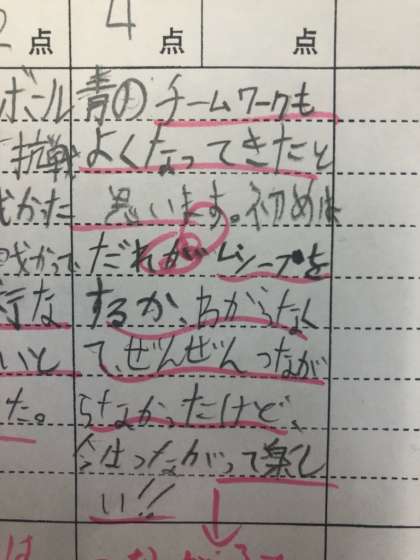 点 4点 点
ボール 青①チームワークも
抗戦 よくなってきたと
かった 思います。初めは
かって だれがレシーブを
な するか、わからなく
いと て、ぜんぜんつなが
た。 らなかったけど、
今はつながって楽し
い!!
は